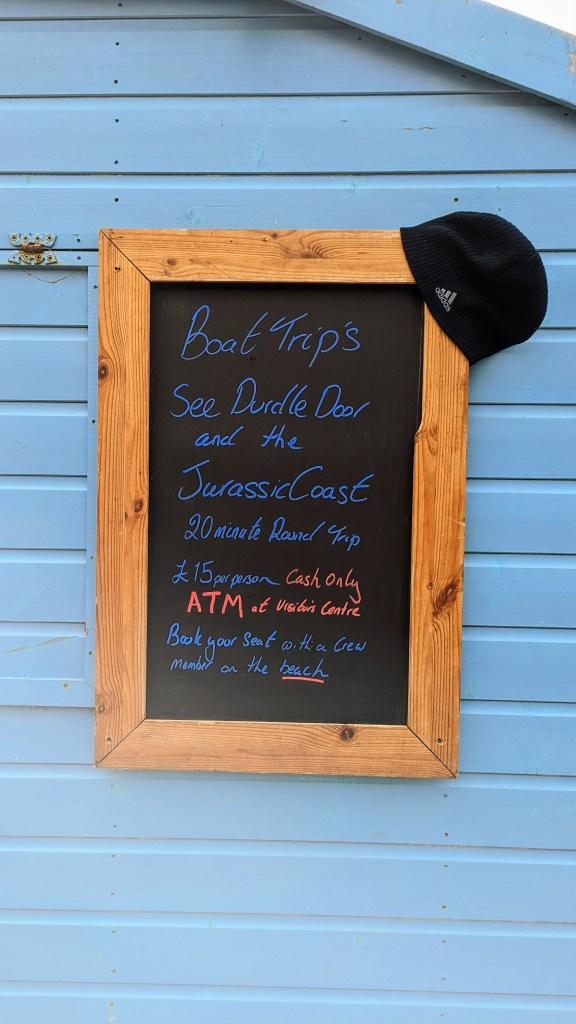 adidas
Boat Trip's
See Durdle Door
and the
Jurassic Coast
20 minute Round Trip
£15 per person Cash Only
ATM at Visitor's Centre
Book your Seat with a Crew
member on the beach